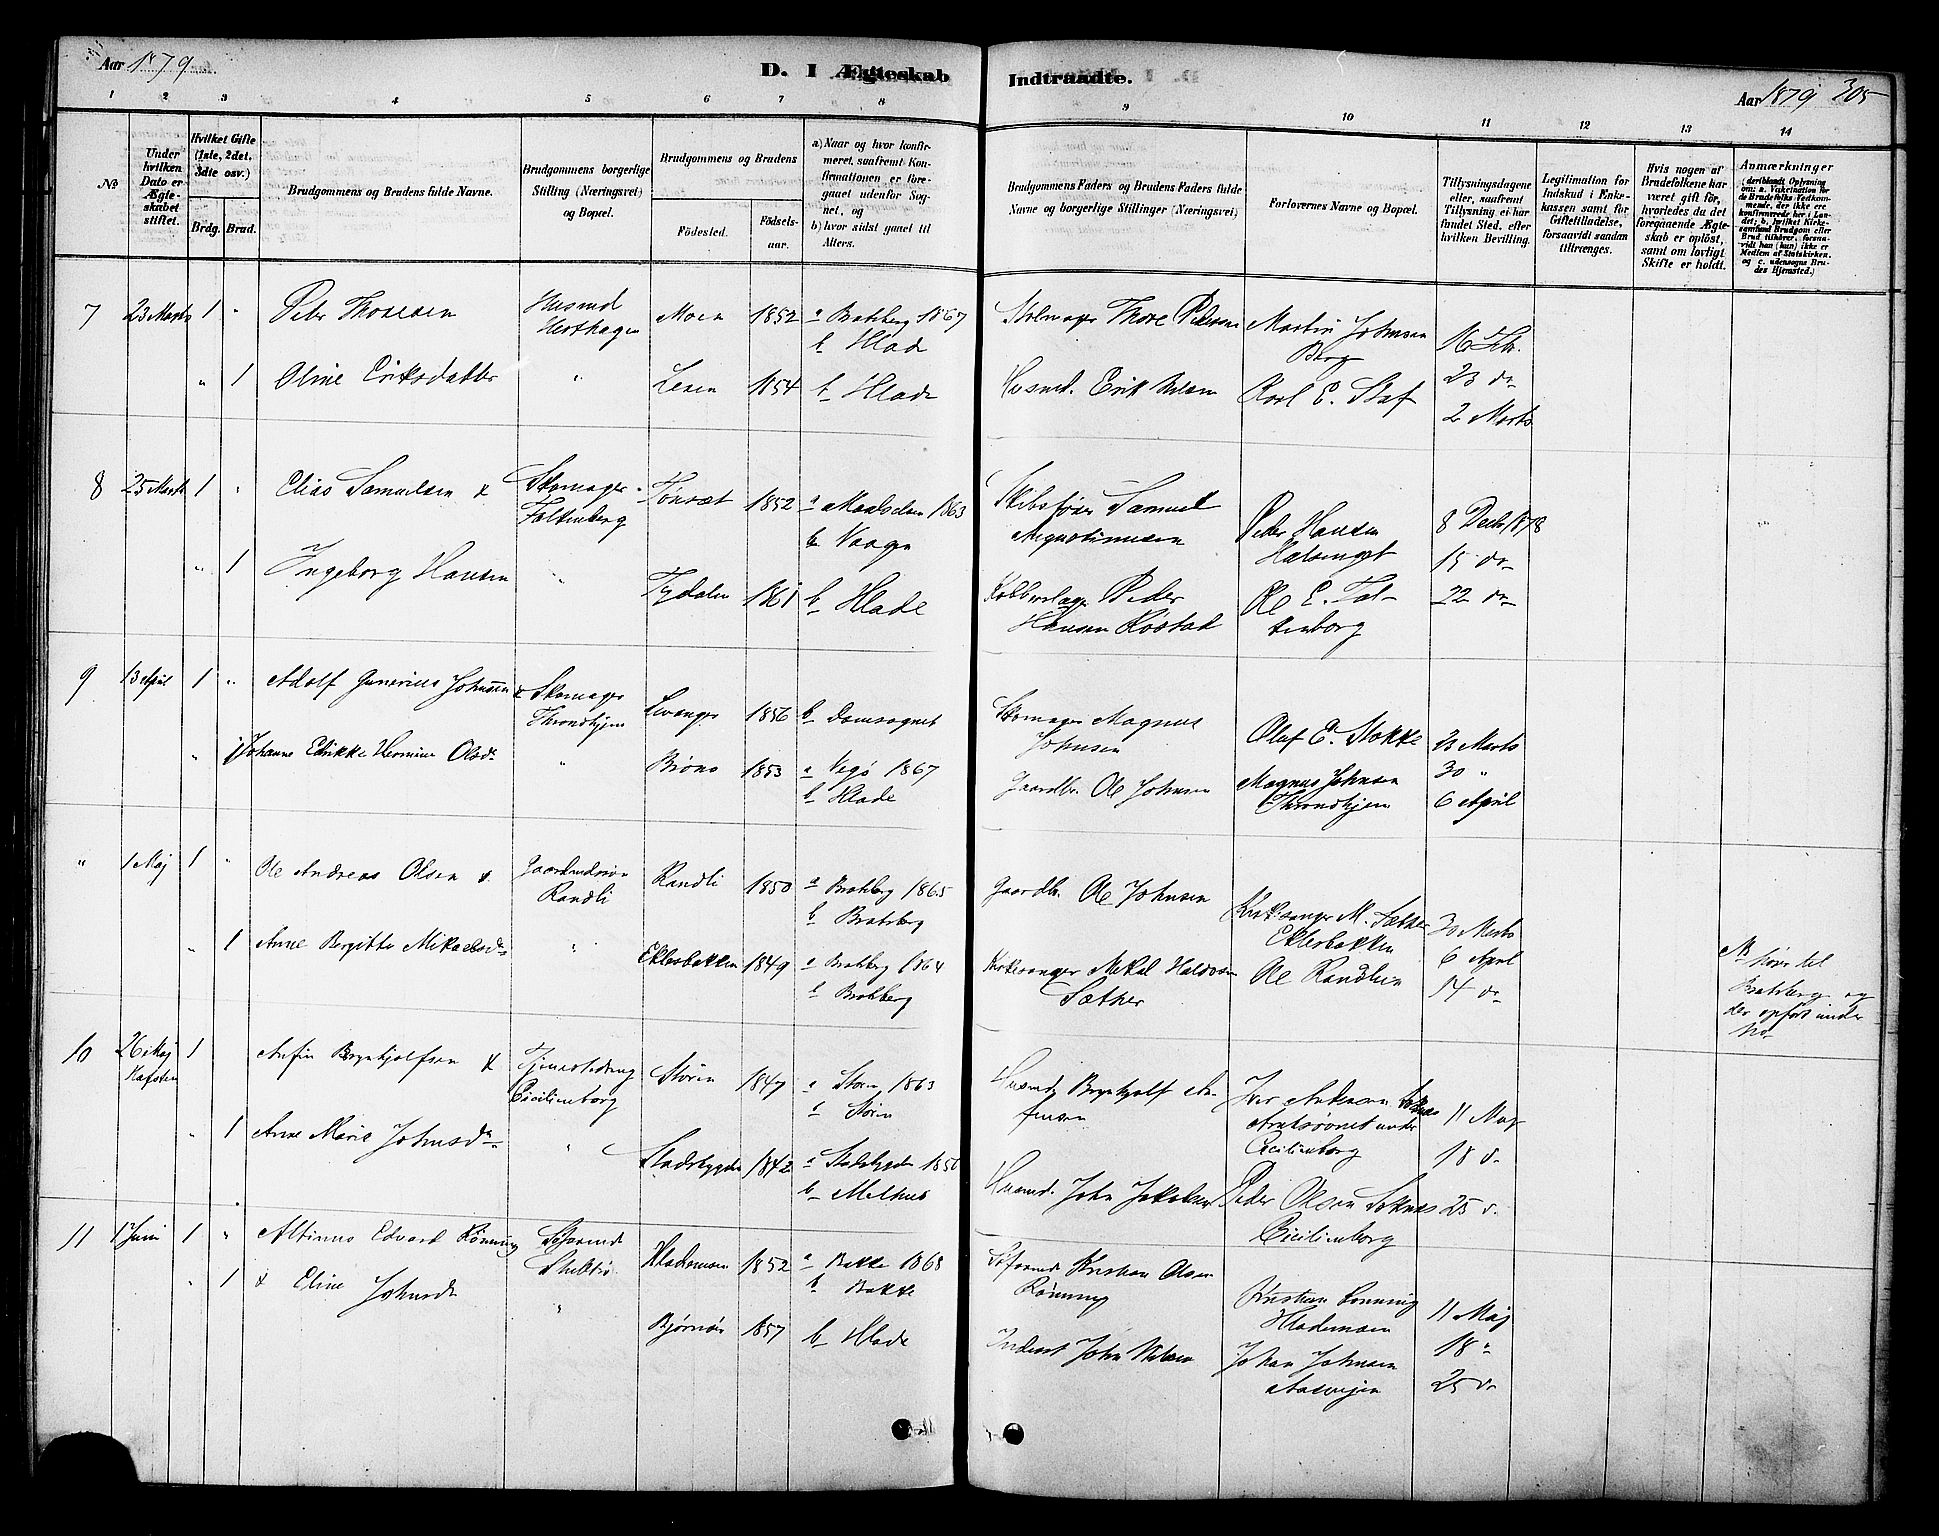 Aar 1879.
D. I Ægteskab
Indtraadte.
Aar 1879 305
1 2 3 4 5 6 7 8 9 10 11 12 13 14
№
Under hvilken Dato er Ægteskabet stiftet.
Hvilket Gifte (1ste, 2det, 3die osv.)
Brdg. Brud.
Brudgommens og Brudens fulde Navne.
Brudgommens borgerlige Stilling (Næringsvei) og Bopæl.
Brudgommens og Brudens
Födested.
Födselsaar.
a) Naar og hvor konfirmeret, saafremt Konfirmationen er foregaaet udenfor Sognet, og
b) hvor sidst gaaet til Alters.
Brudgommens Faders og Brudens Faders fulde Navne og borgerlige Stillinger (Næringsvei)
Forlovernes Navne og Bopæl.
Tillysningsdagene eller, saafremt Tillysning ei har fundet Sted, efter hvilken Bevilling.
Legitimation for Indskud i Enkekassen samt for Giftetilladelse, forsaavidt saadan tiltrænges.
Hvis nogen af Brudefolkene har været gift för, hvorledes da det foregaaende Ægteskab er oplöst, samt om lovligt Skifte er holdt.
Anmærkninger
(deriblandt Oplysning om: a. Vakcination for de Brudefolks Vedkommende, der ikke ere konfirmerede her i Landet; b. hvilket Kirkesamfund Brudgom eller Brud tilhörer, forsaavidt han (hun) ikke er Medlem af Statskirken, og c. udensogns Brudes Hjemsted.)
7 23 Marts 1 " Peder Thoresen Husmd Moen 1852 a Bratsberg 1867 Thore Pedersen Martin Johnsen 16 Febr.
b Hlade Berg
" 1 Oline Eriksdatter " 1854 b Hlade Husmd. Erik Nilsen Karl E. Staf 23 do
2 Marts
8 25 Marts 1 " Elias Samuelsen & Skomager Tönset 1852 a Maalselven 1863 Skibsförer Samuel Peder Hansen 8 Decbr 1878
Faltenborg b Vaagen Augustinusen 15 do
" 1 Ingeborg Hansen " Tydalen 1861 b Hlade Peder Ole E. Fal- 22 do
Hansen Röstad tenborg
9 13 April 1 " Adolf Gunerius Johnsen & Skomager Levanger 1856 b Domsognet Skomager Magnus Olaf E. Stokke 23 Marts
Throndhjem Johnsen 30 "
" 1 Johanne Edrikke Hermine Olsdr " Brönö 1853 a Vegö 1867 Gaardbr. Ole Johnsen Magnus Johnsen 6 April
b Hlade Throndhjem
" 1 Maj 1 " Ole Andreas Olsen & Randli 1850 a Bratsberg 1865 Gaardbr. Ole Johnsen Kirkesanger M. Sæther 30 Marts
Randli b Bratsberg Eklesbakken 6 April
" 1 Anne Bergitte Mikaelsdr " Eklesbakken 1849 a Bratsberg 1864 Kirkesanger Mikal Haldorsen Ole Randlien 14 do
b Bratsberg Sæther
NB hörer til
Bratsberg og
der opfört under
No
10 26 Maj 1 Anfin Brynhjolfsen & Stören 1847 a Stören 1863 Husmd Brynhjolf An- Iver Andersen Soknes 11 Maj
Cicilienborg b Stören finsen under
Cicilienborg 18 d.
" 1 Anne Marie Johnsdr " Stadsbygden 1842 a Stadsbygden 1856 Husmd. John Jakobsen Peder Olsen Soknes 25 d.
b Melhus Cicilienborg
11 1 Juni 1 " Altinus Edvard Rönning Hlademoen 1852 a Bakke 1868 Kristian Olsen
b Bakke Rönning Kristian Rönning 11 Maj
" 1 & Eline Johnsdr " Hlademoen
Bjørnör 1857 b Hlade Inderst John Nilsen Johan Johnsen 18 "
25 do